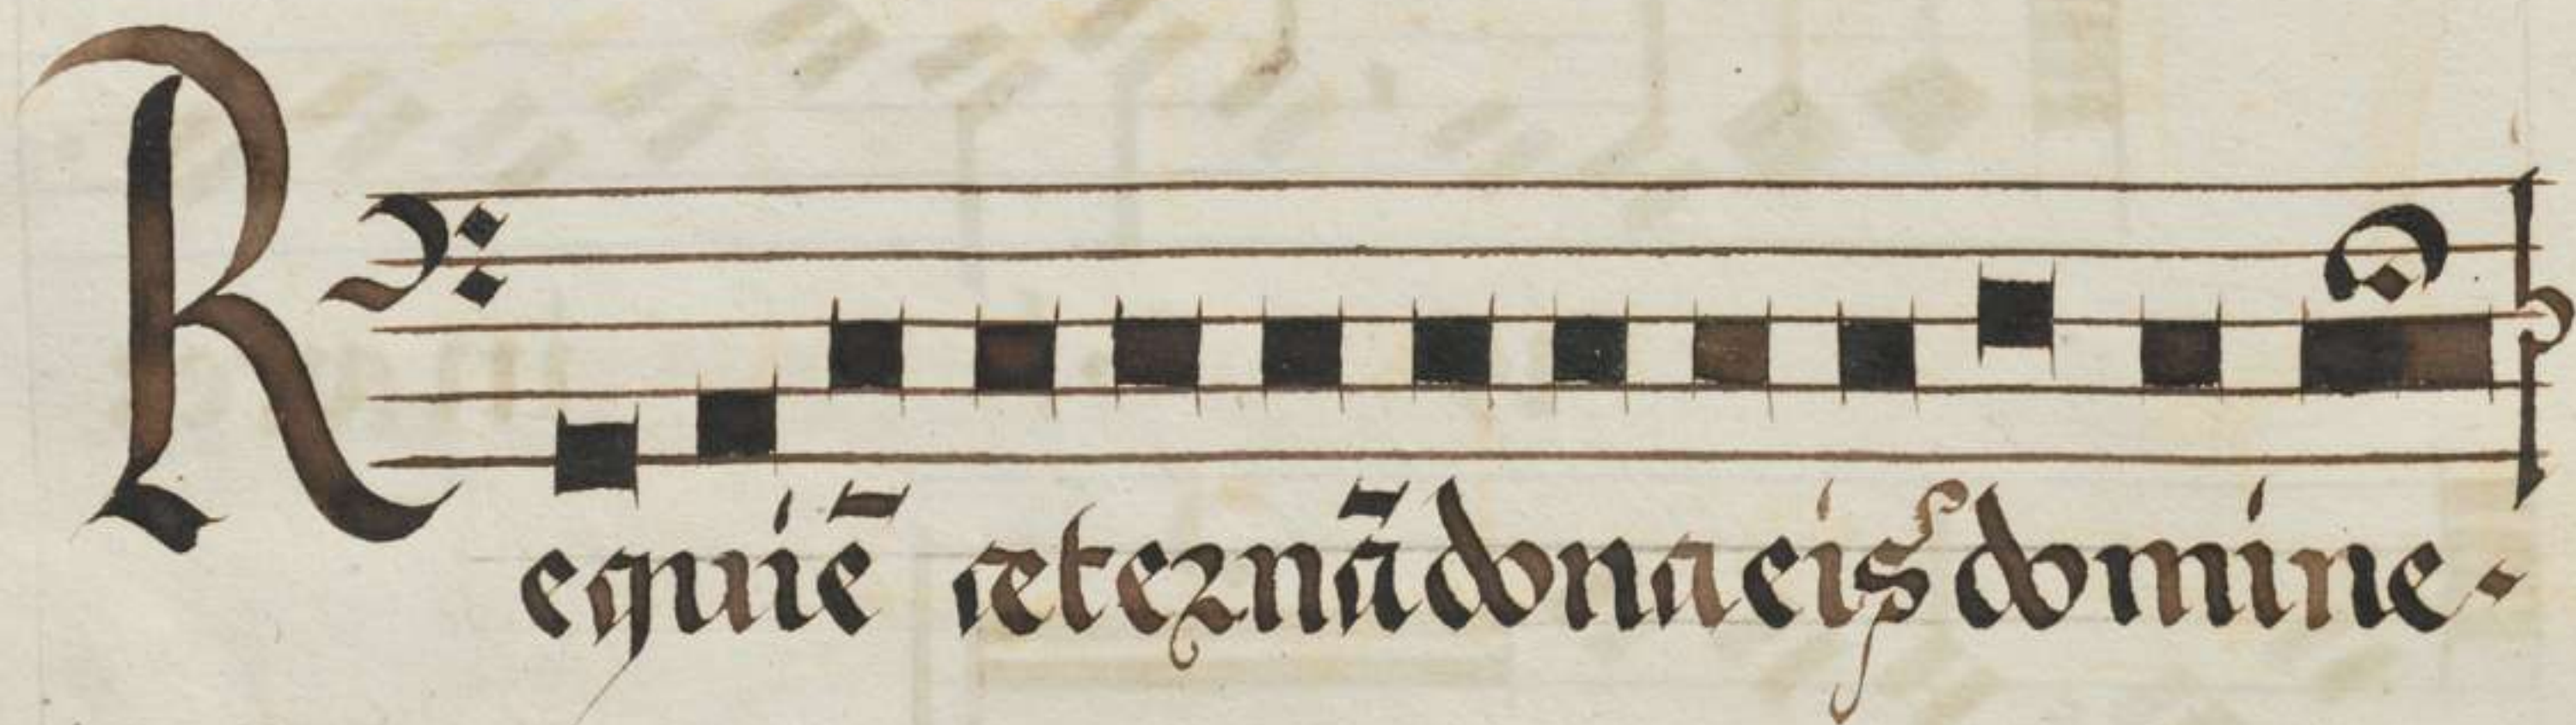 Requiē æternā dona eis domine.